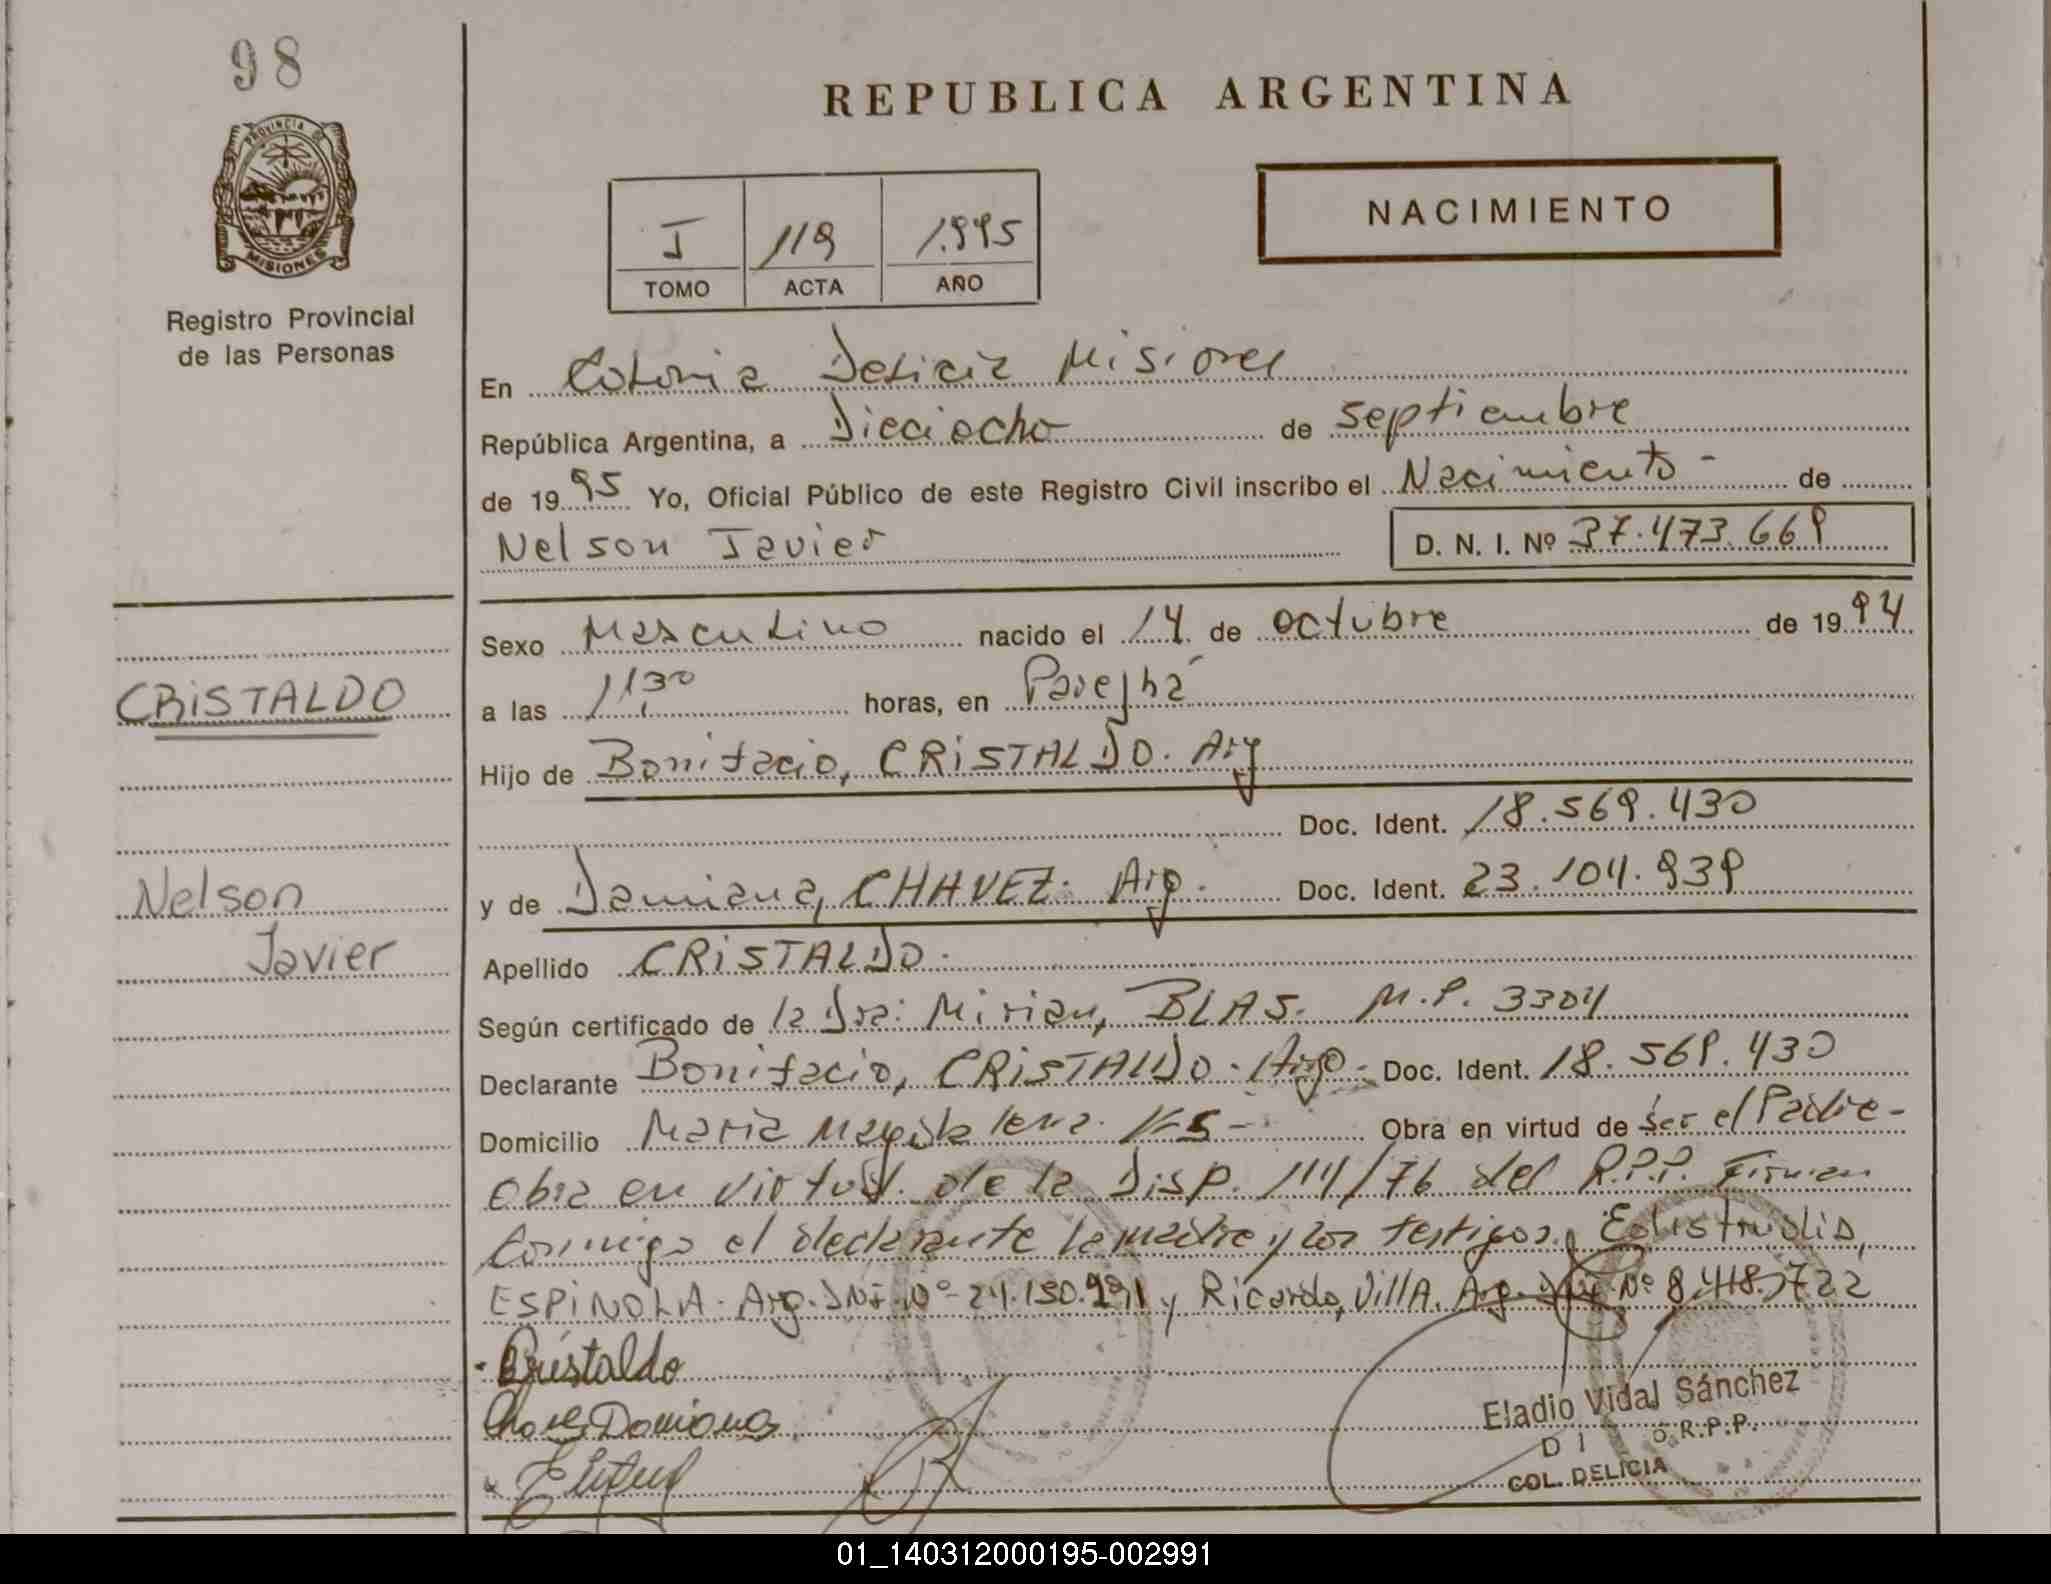 98
REPUBLICA ARGENTINA
PROVINCIA DE
MISIONES
Registro Provincial
de las Personas
I 119 1.995
TOMO ACTA AÑO
NACIMIENTO
En Colonia Delicia Misiones
República Argentina, a Dieciocho de septiembre
de 19 95 Yo, Oficial Público de este Registro Civil inscribo el Nacimiento - de
Nelson Javier D. N. I. Nº 37.473.669
Sexo Masculino nacido el 14 de octubre de 19 94
a las 11,30 horas, en Parejhá
Hijo de Bonifacio, CRISTALDO. Arg
Doc. Ident. 18.569.430
y de Damiana, CHAVEZ. Arg. Doc. Ident. 23.104.939
Apellido CRISTALDO.
Según certificado de la Dra: Mirian, BLAS. M.P. 3304
Declarante Bonifacio, CRISTALDO. Arg. Doc. Ident. 18.569.430
Domicilio Maria Magdalena. Obra en virtud de ser el Padre-
obra en virtud. de la Disp. 111/76 del R.P.P. Firman
conmigo el declarante la madre y los testigos,
ESPINOLA. Arg. DNI. Nº 24.150.991 y Ricardo, VillA. Arg. Nº 8.418.722
CRISTALDO
Nelson
Javier
Cristaldo
Damiana
Eladio Vidal Sánchez
R.P.P.
COL. DELICIA
01_140312000195-002991